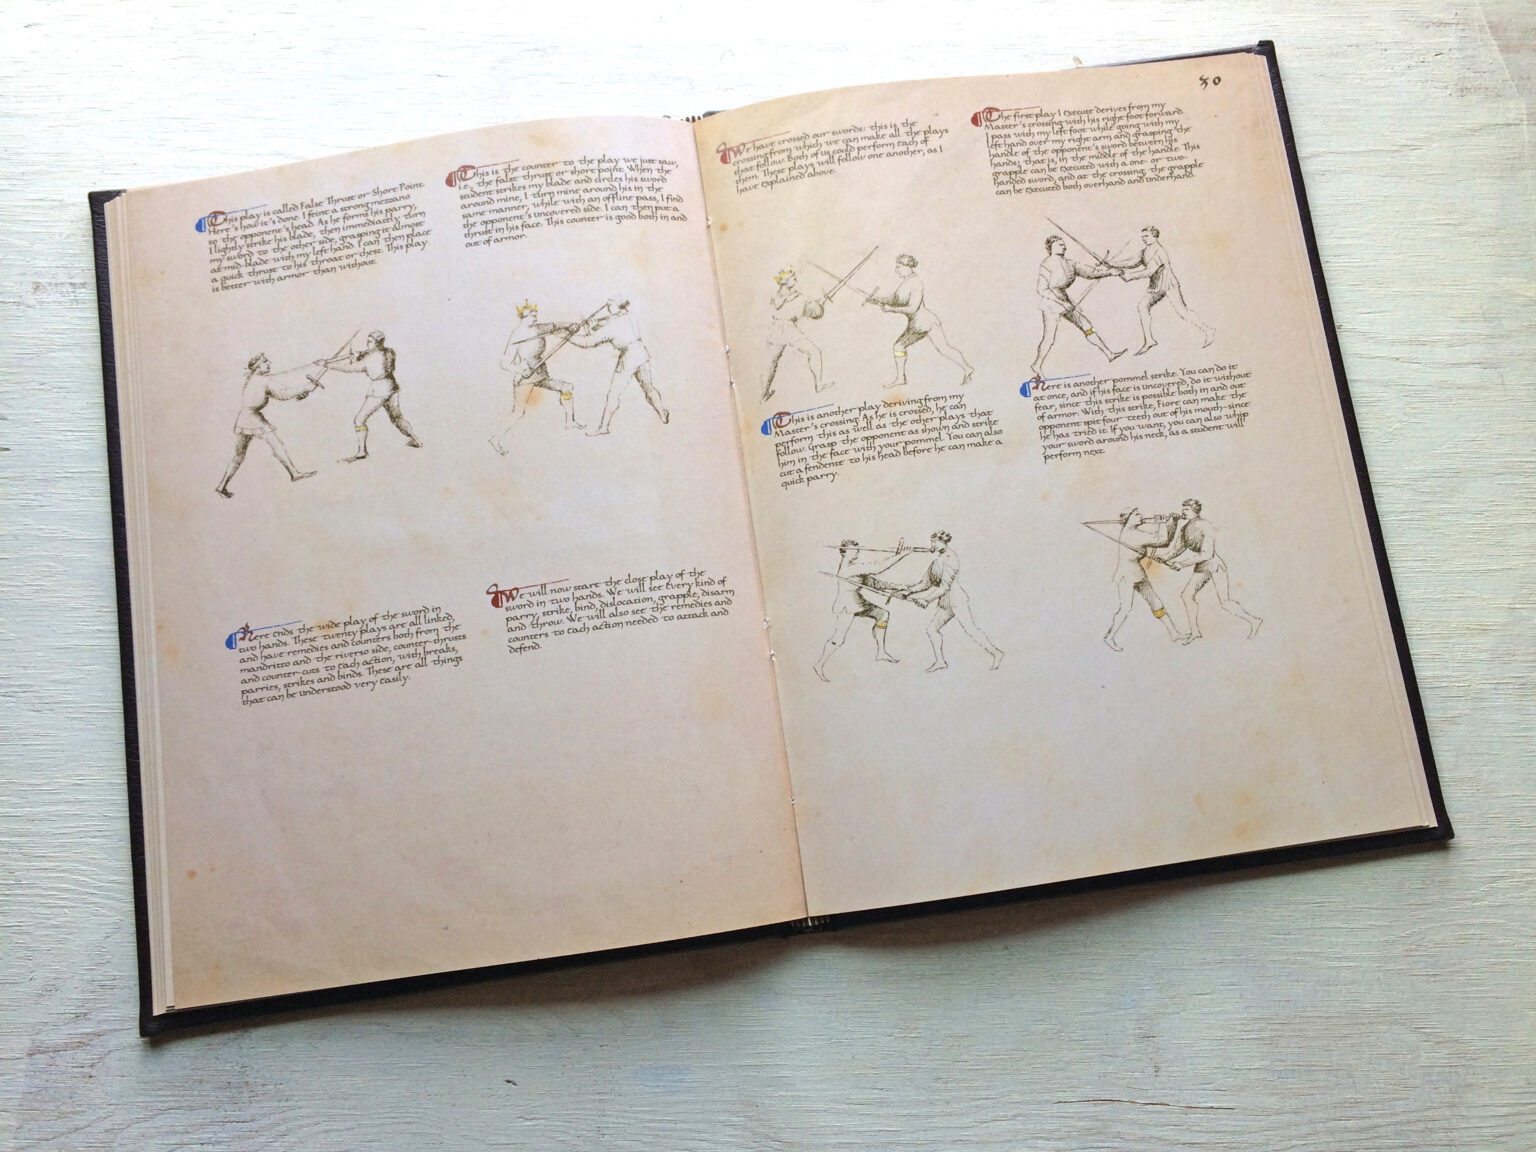 This play is called False Thrust or Short Point.
Here's how it's done. I feint a strong mezzano
to the opponent's head. As he forms his parry,
I lightly strike his blade, then immediately turn
my sword to the other side, grasping it almost
at mid-blade with my left hand. I can then place
a quick thrust to his throat or chest. This play
is better with armor than without.
This is the counter to the play we just saw,
i.e. the false thrust or short point. When the
student strikes my blade and circles his sword
around mine, I turn mine around his in the
same manner, while with an offline pass, I find
the opponent's uncovered side. I can then put a
thrust in his face. This counter is good both in and
out of armor.
Here ends the wide play of the sword in
two hands. These twenty plays are all linked,
and have remedies and counters both from the
mandritto and the riverso side, counter-thrusts
and counter-cuts to each action, with breaks,
parries, strikes and binds. These are all things
that can be understood very easily.
We will now start the close play of the
sword in two hands. We will see every kind of
parry, strike, bind, dislocation, grapple, disarm
and throw. We will also see the remedies and
counters to each action needed to attack and
defend.
30
We have crossed our swords: this is the
crossing from which we can make all the plays
that follow. Both of us could perform each of
them. These plays will follow one another, as I
have explained above.
The first play I execute derives from my
Master's crossing with his right foot forward.
I pass with my left foot while going with my
left hand over my right arm and grasping the
handle of the opponent's sword between his
hands; that is, in the middle of the handle. This
grapple can be executed with a one- or two-
handed sword, and at the crossing, the grapple
can be executed both overhand and underhand.
This is another play deriving from my
Master's crossing. As he is crossed, he can
perform this as well as the other plays that
follow. Grasp the opponent as shown and strike
him in the face with your pommel. You can also
cut a fendente to his head before he can make a
quick parry.
Here is another pommel strike. You can do it
at once, and if his face is uncovered, do it without
fear, since this strike is possible both in and out
of armor. With this strike, Fiore can make the
opponent spit four teeth out of his mouth—since
he has tried it. If you want, you can also whip
your sword around his neck, as a student will
perform next.